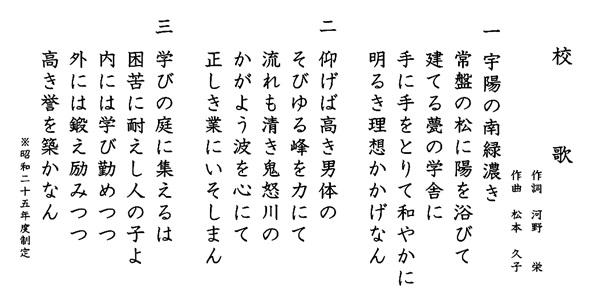 校歌
作詞 河野 栄
作曲 松本 久子
一 宇陽の南緑濃き
常盤の松に陽を浴びて
建てる甍の学舎に
手に手をとりて和やかに
明るき理想かかげなん
二 仰げば高き男体の
そびゆる峰を力にて
流れも清き鬼怒川の
かがよう波を心にて
正しき業にいそしまん
三 学びの庭に集えるは
困苦に耐えし人の子よ
内には学び勤めつつ
外には鍛え励みつつ
高き誉を築かなん
※昭和二十五年度制定